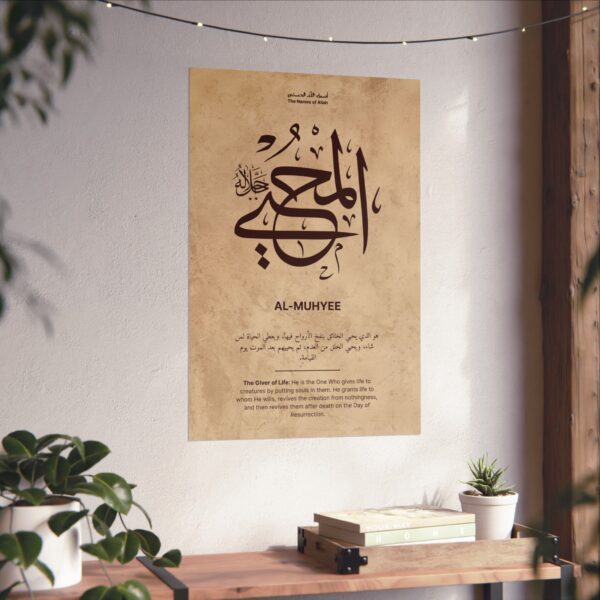 أسماء الله الحسنى
The Names of Allah
المحيي
جل جلاله
AL-MUHYEE
هو الذي يحيي الخلائق بنفخ الأرواح فيها، ويعطي الحياة لمن
شاء، ويحيي الخلق من العدم، ثم يحييهم بعد الموت يوم
القيامة.
The Giver of Life: He is the One Who gives life to
creatures by putting souls in them. He grants life to
whom He wills, revives the creation from nothingness,
and then revives them after death on the Day of
Resurrection.